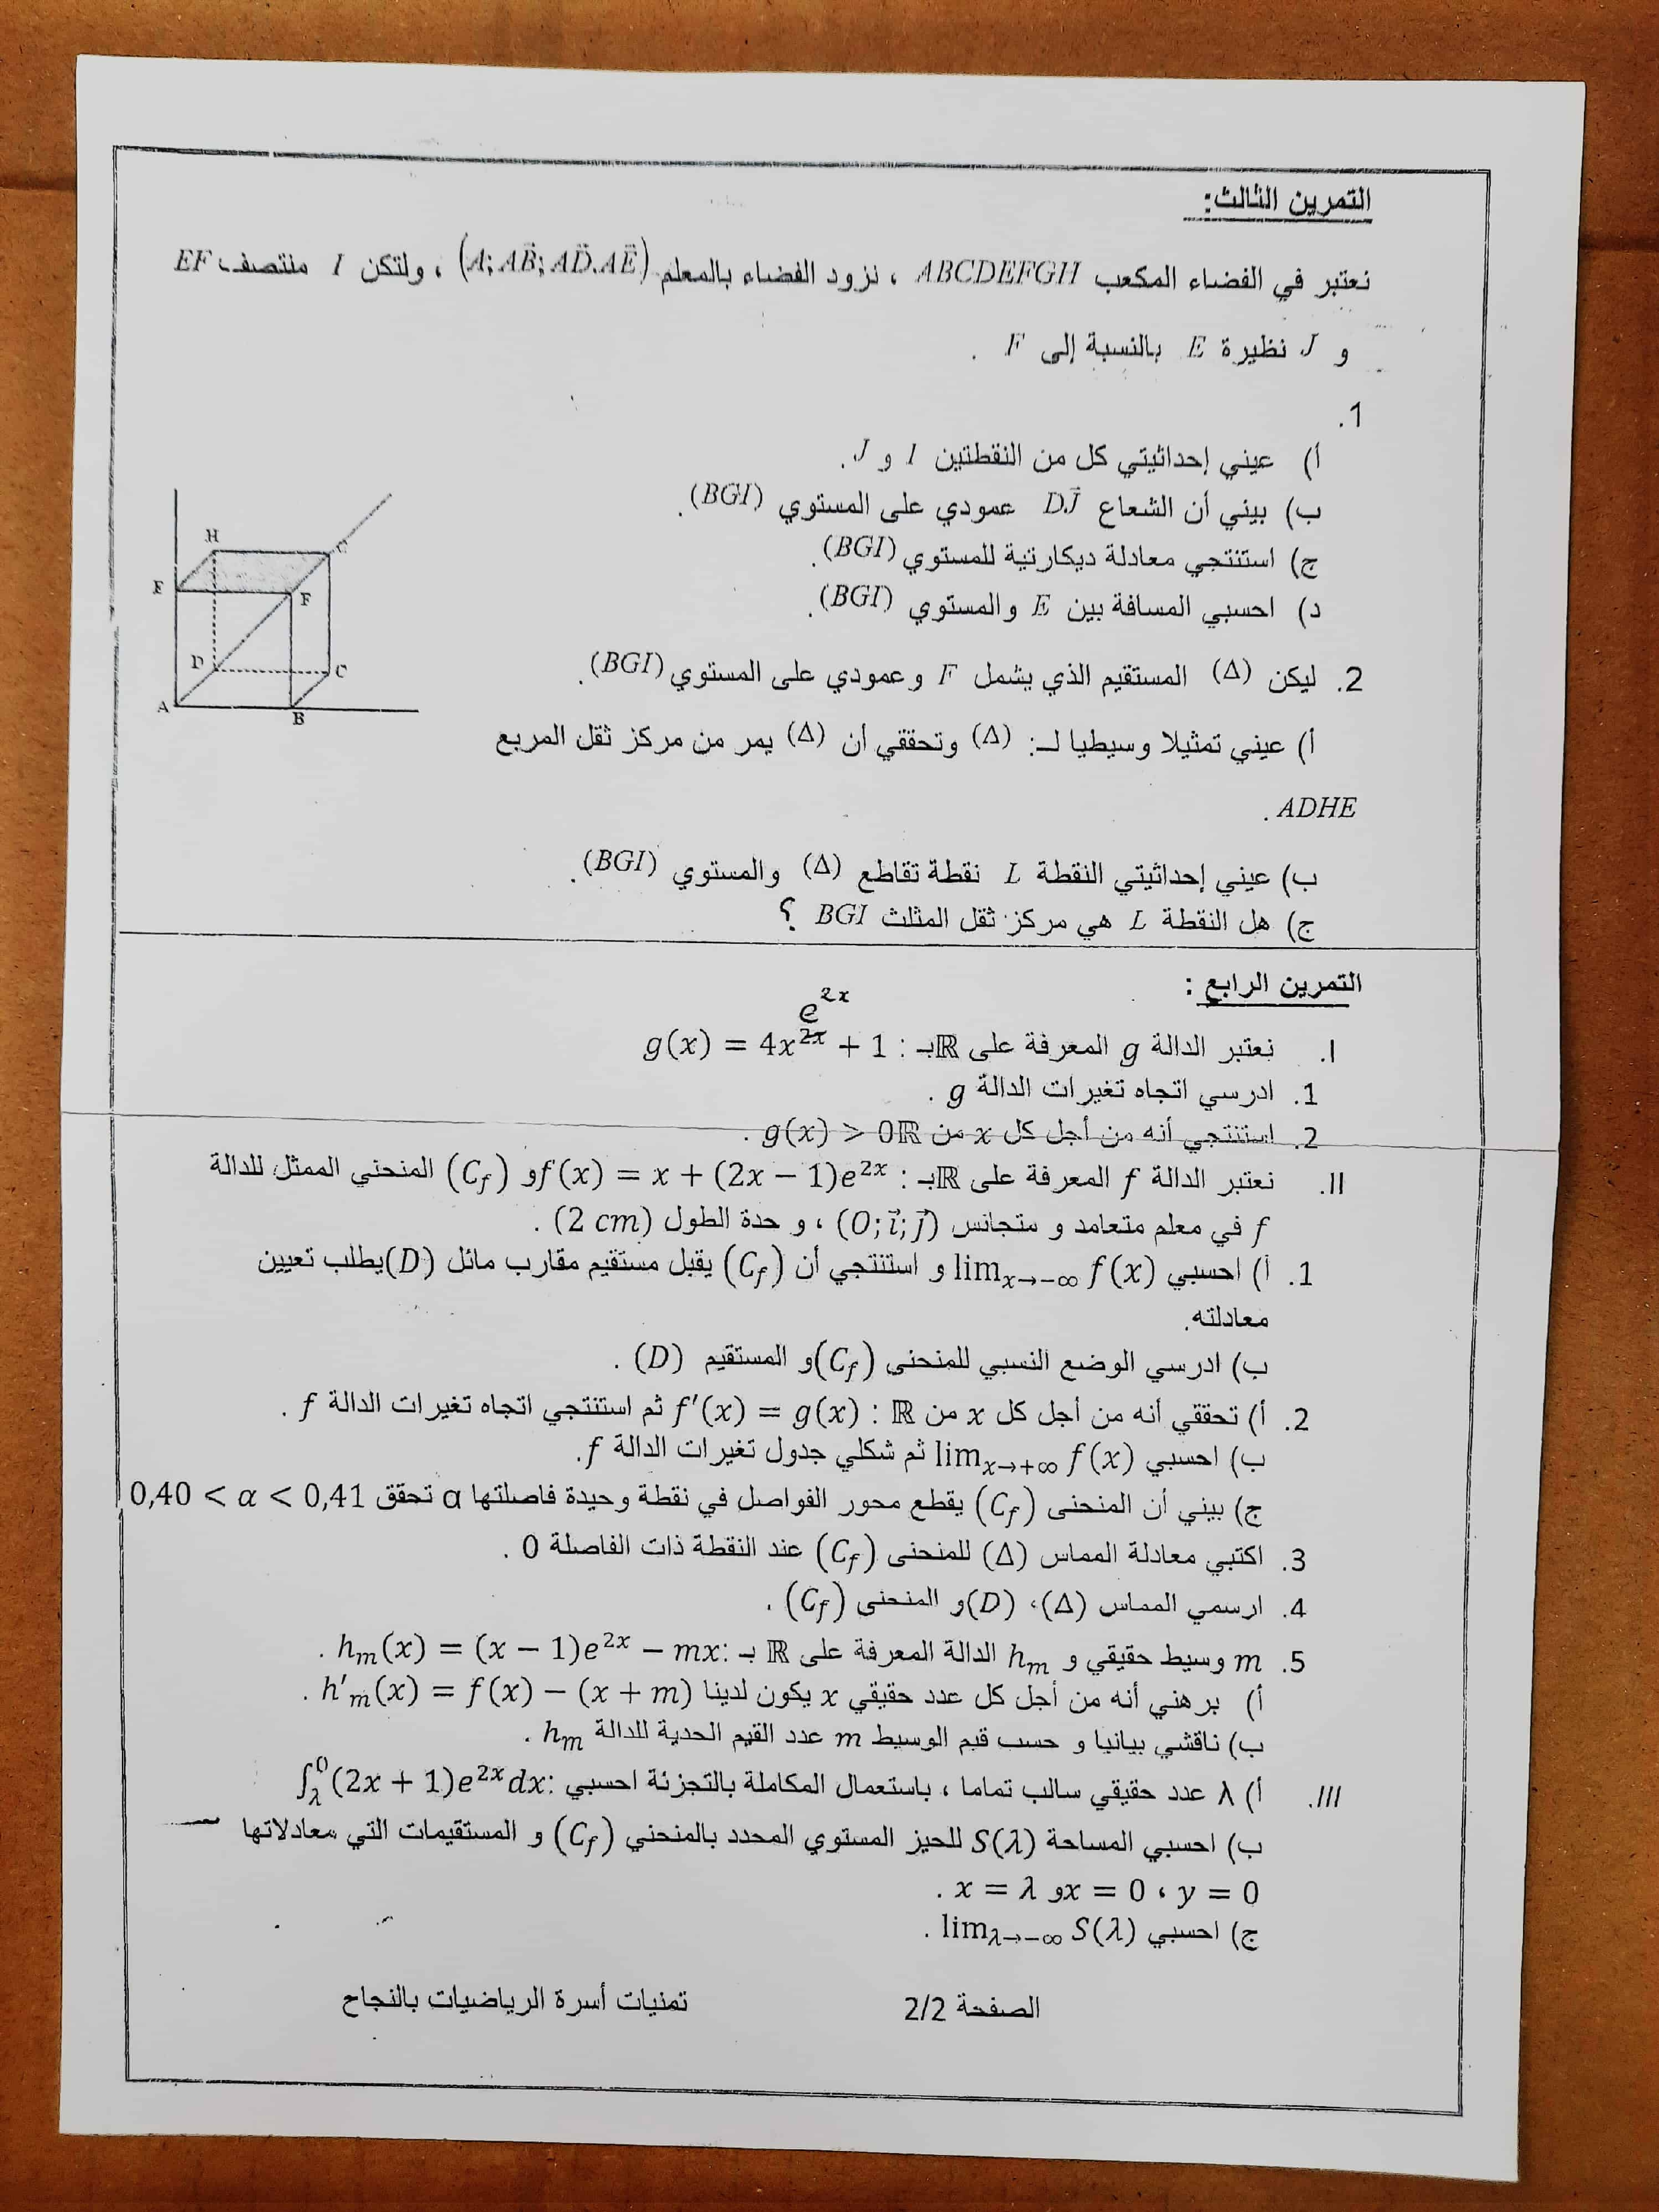 التمرين الثالث:
نعتبر في الفضاء المكعب ABCDEFGH ، نزود الفضاء بالمعلم (A; AB⃗; AD⃗.AE⃗) ، ولتكن I منتصف EF
و J نظيرة E بالنسبة إلى F .
1.
أ) عيني إحداثيتي كل من النقطتين I و J.
ب) بيني أن الشعاع DJ⃗ عمودي على المستوي (BGI).
ج) استنتجي معادلة ديكارتية للمستوي (BGI).
د) احسبي المسافة بين E والمستوي (BGI).
2. ليكن (Δ) المستقيم الذي يشمل F وعمودي على المستوي (BGI).
أ) عيني تمثيلا وسيطيا لـ: (Δ) وتحققي أن (Δ) يمر من مركز ثقل المربع
ADHE .
ب) عيني إحداثيتي النقطة L نقطة تقاطع (Δ) والمستوي (BGI).
ج) هل النقطة L هي مركز ثقل المثلث BGI ؟
H
G
E
F
D
C
A
B
التمرين الرابع :
e^{2x}
I. نعتبر الدالة g المعرفة على ℝ بـ : g(x) = 4x^{2x} + 1
1. ادرسي اتجاه تغيرات الدالة g .
2. استنتجي أنه من أجل كل x من ℝ g(x) > 0 .
II. نعتبر الدالة f المعرفة على ℝ بـ : f(x) = x + (2x − 1)e^{2x} و (C_f) المنحني الممثل للدالة
f في معلم متعامد و متجانس (O; i⃗; j⃗) ، و حدة الطول (2 cm) .
1. أ) احسبي lim_{x→−∞} f(x) و استنتجي أن (C_f) يقبل مستقيم مقارب مائل (D) يطلب تعيين
معادلته.
ب) ادرسي الوضع النسبي للمنحنى (C_f) و المستقيم (D) .
2. أ) تحققي أنه من أجل كل x من ℝ : f′(x) = g(x) ثم استنتجي اتجاه تغيرات الدالة f .
ب) احسبي lim_{x→+∞} f(x) ثم شكلي جدول تغيرات الدالة f.
ج) بيني أن المنحنى (C_f) يقطع محور الفواصل في نقطة وحيدة فاصلتها α تحقق 0,40 < α < 0,41
3. اكتبي معادلة المماس (Δ) للمنحنى (C_f) عند النقطة ذات الفاصلة 0 .
4. ارسمي المماس (Δ)، (D) و المنحنى (C_f) .
5. m وسيط حقيقي و h_m الدالة المعرفة على ℝ بـ :h_m(x) = (x − 1)e^{2x} − mx .
أ) برهني أنه من أجل كل عدد حقيقي x يكون لدينا h′_m(x) = f(x) − (x + m) .
ب) ناقشي بيانيا و حسب قيم الوسيط m عدد القيم الحدية للدالة h_m .
III. أ) λ عدد حقيقي سالب تماما ، باستعمال المكاملة بالتجزئة احسبي :∫_λ^0 (2x + 1)e^{2x} dx
ب) احسبي المساحة S(λ) للحيز المستوي المحدد بالمنحني (C_f) و المستقيمات التي معادلاتها
x = λ و x = 0 ، y = 0 .
ج) احسبي lim_{λ→−∞} S(λ) .
الصفحة 2/2 تمنيات أسرة الرياضيات بالنجاح